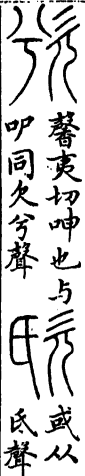 馨夷切呻也与
叩同欠兮聲
或从
氏聲